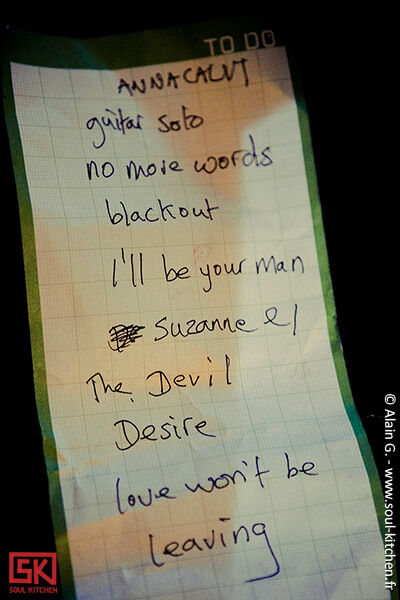 TO DO
ANNA CALVI
guitar solo
no more words
blackout
I'll be your man
Suzanne el
The Devil
Desire
love won't be
leaving
© Alain G. - www.soul-kitchen.fr
SK
SOUL KITCHEN